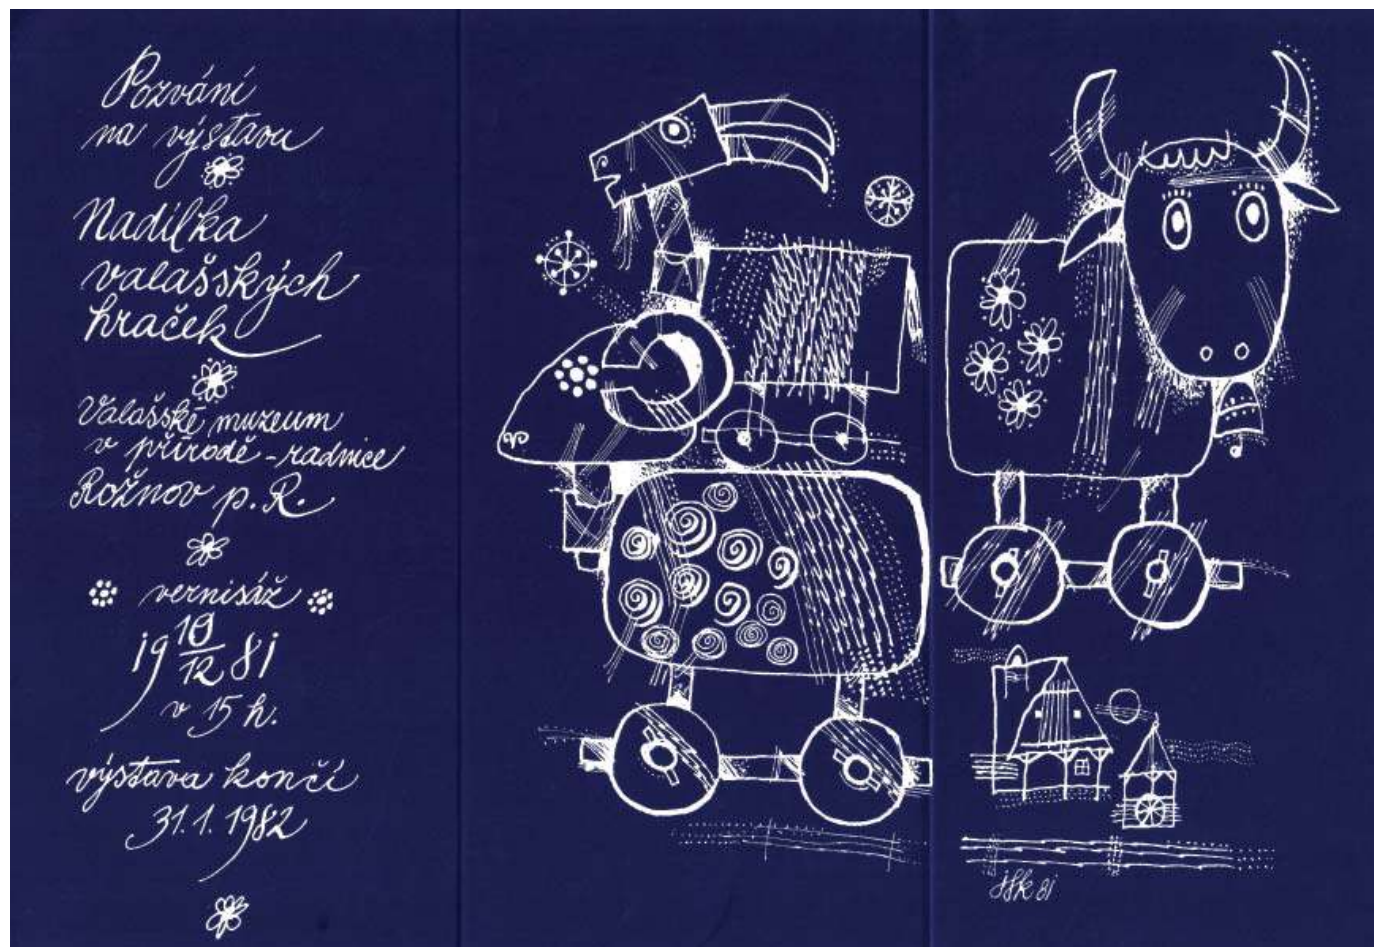 Pozvání
na výstavu
Nadílka
valašských
hraček
Valašské muzeum
v přírodě - radnice
Rožnov p. R.
vernisáž
19 10/12 81
v 15 h.
výstava končí
31. 1. 1982
81